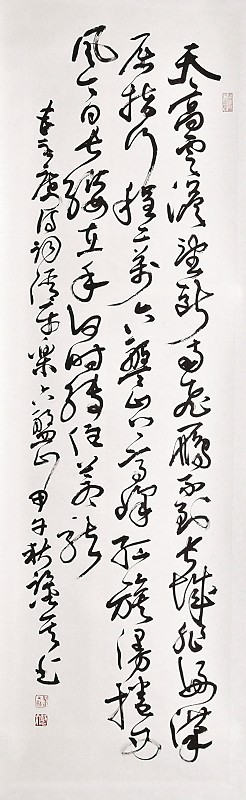 天高雲淡望斷南飛雁不到長城非好漢
屈指行程二萬六盤山上高峰紅旗漫捲西
風今日長纓在手何時縛住蒼龍
毛主席詩詞清平樂六盤山 甲午秋 书